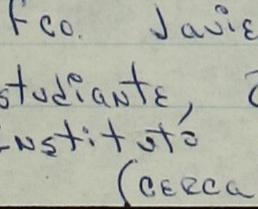 Fco. Javie
studiante,
Instituto
(CERCA